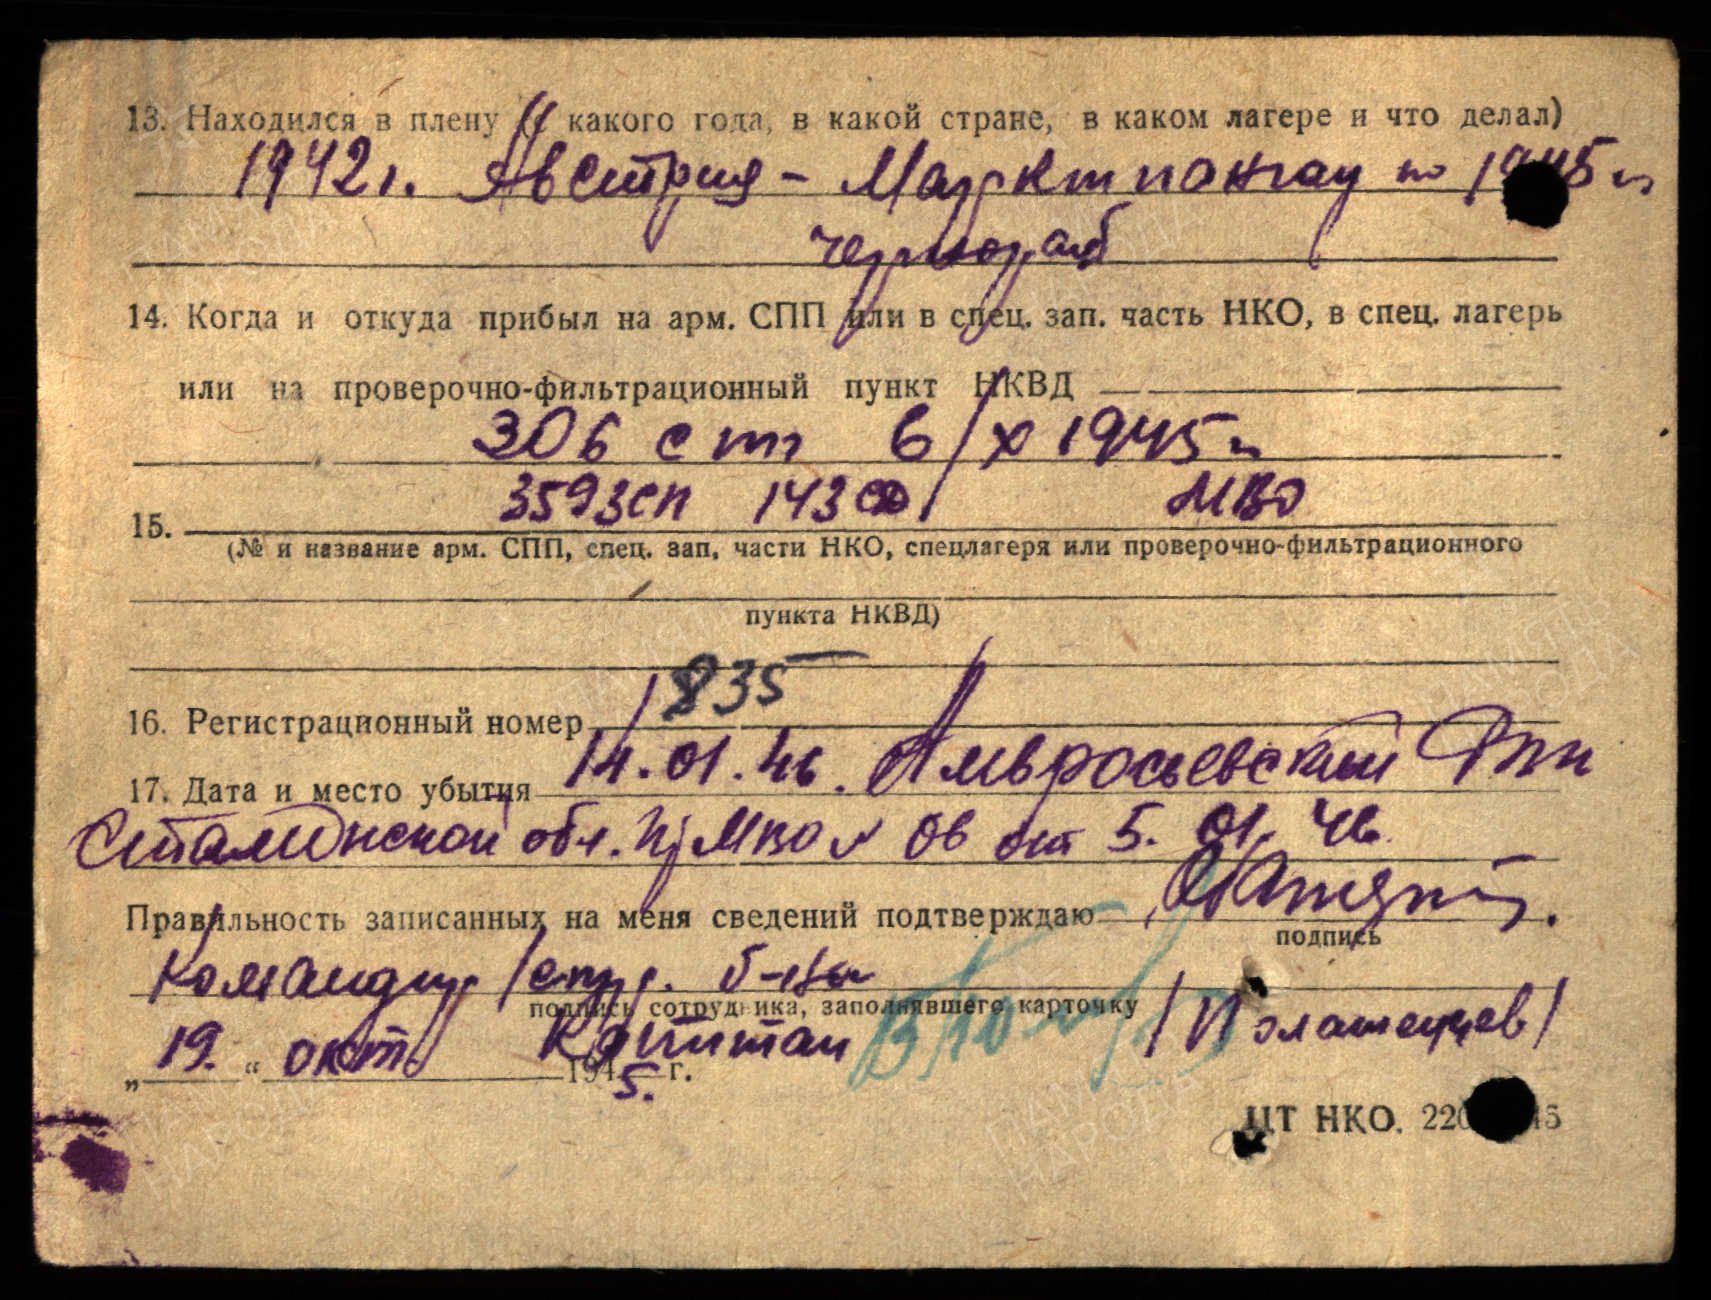 13. Находился в плену (с какого года, в какой стране, в каком лагере и что делал)
1942 г. Австрия - Марктпонгау по 1945 г
чернораб
14. Когда и откуда прибыл на арм. СПП или в спец. зап. часть НКО, в спец. лагерь
или на проверочно-фильтрационный пункт НКВД
306 сп 6/X 1945 г
359 зсп 143 сд МВО
15.
(№ и название арм. СПП, спец. зап. части НКО, спецлагеря или проверочно-фильтрационного
пункта НКВД)
835
16. Регистрационный номер
17. Дата и место убытия 14.01.46. Амвросьевский
Сталинской обл. МВО № 06 от 5.01.46
Правильность записанных на меня сведений подтверждаю
подпись
Командир стр. б-на
подпись сотрудника, заполнявшего карточку
Капитан
„19.“ окт 1945. г.
ЦТ НКО. 220